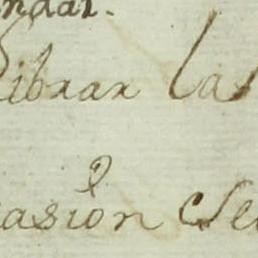 ndar.
Librar las
casion se